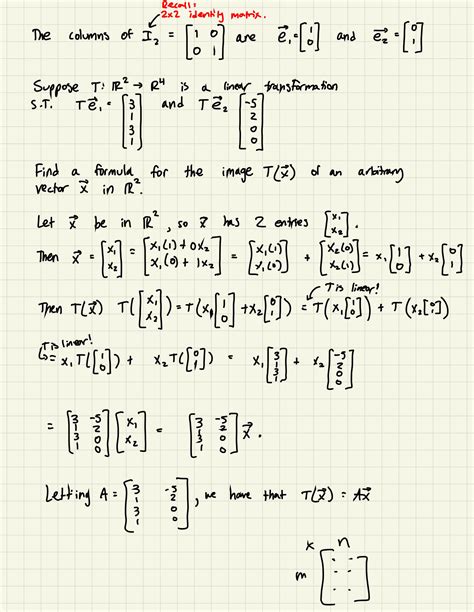 Recall:
2x2 identity matrix.
The columns of I₂ = [1 0; 0 1] are e⃗₁=[1; 0] and e⃗₂=[0; 1]
Suppose T: ℝ² → ℝ⁴ is a linear transformation
s.t. Te⃗₁ = [3; 1; 3; 1] and Te⃗₂ [-5; 2; 0; 0]
Find a formula for the image T(x⃗) of an arbitrary
vector x⃗ in ℝ².
Let x⃗ be in ℝ², so x⃗ has 2 entries [x₁; x₂].
Then x⃗ = [x₁; x₂] = [x₁(1) + 0x₂; x₁(0) + 1x₂] = [x₁(1); x₁(0)] + [x₂(0); x₂(1)] = x₁[1; 0] + x₂[0; 1]
T is linear!
Then T(x⃗) T([x₁; x₂]) = T(x₁[1; 0] + x₂[0; 1]) = T(x₁[1; 0]) + T(x₂[0; 1])
T is linear!
= x₁T([1; 0]) + x₂T([0; 1]) = x₁[3; 1; 3; 1] + x₂[-5; 2; 0; 0]
= [3 -5; 1 2; 3 0; 1 0][x₁; x₂] = [3 -5; 1 2; 3 0; 1 0]x⃗.
Letting A = [3 -5; 1 2; 3 0; 1 0], we have that T(x⃗) = Ax⃗
x n
m